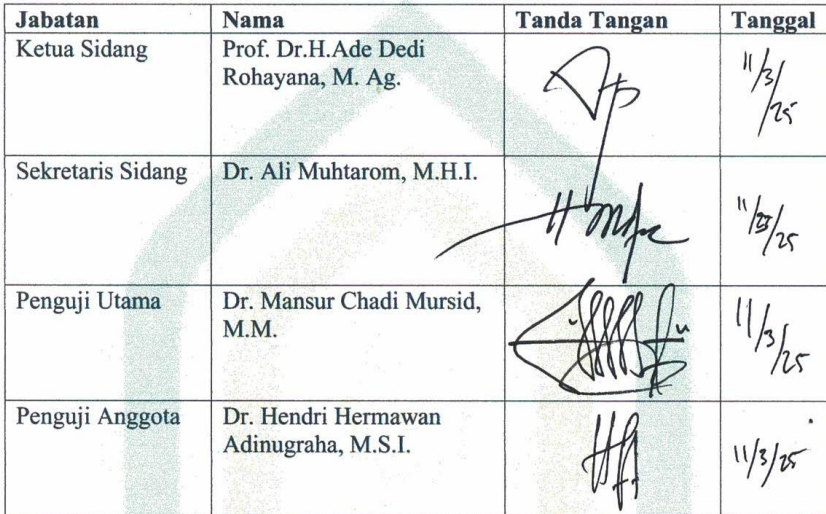 Jabatan Nama Tanda Tangan Tanggal
Ketua Sidang Prof. Dr.H.Ade Dedi
Rohayana, M. Ag. 11/3/25
Sekretaris Sidang Dr. Ali Muhtarom, M.H.I.
Penguji Utama Dr. Mansur Chadi Mursid,
M.M. 11/3/25
Penguji Anggota Dr. Hendri Hermawan
Adinugraha, M.S.I. 11/3/25